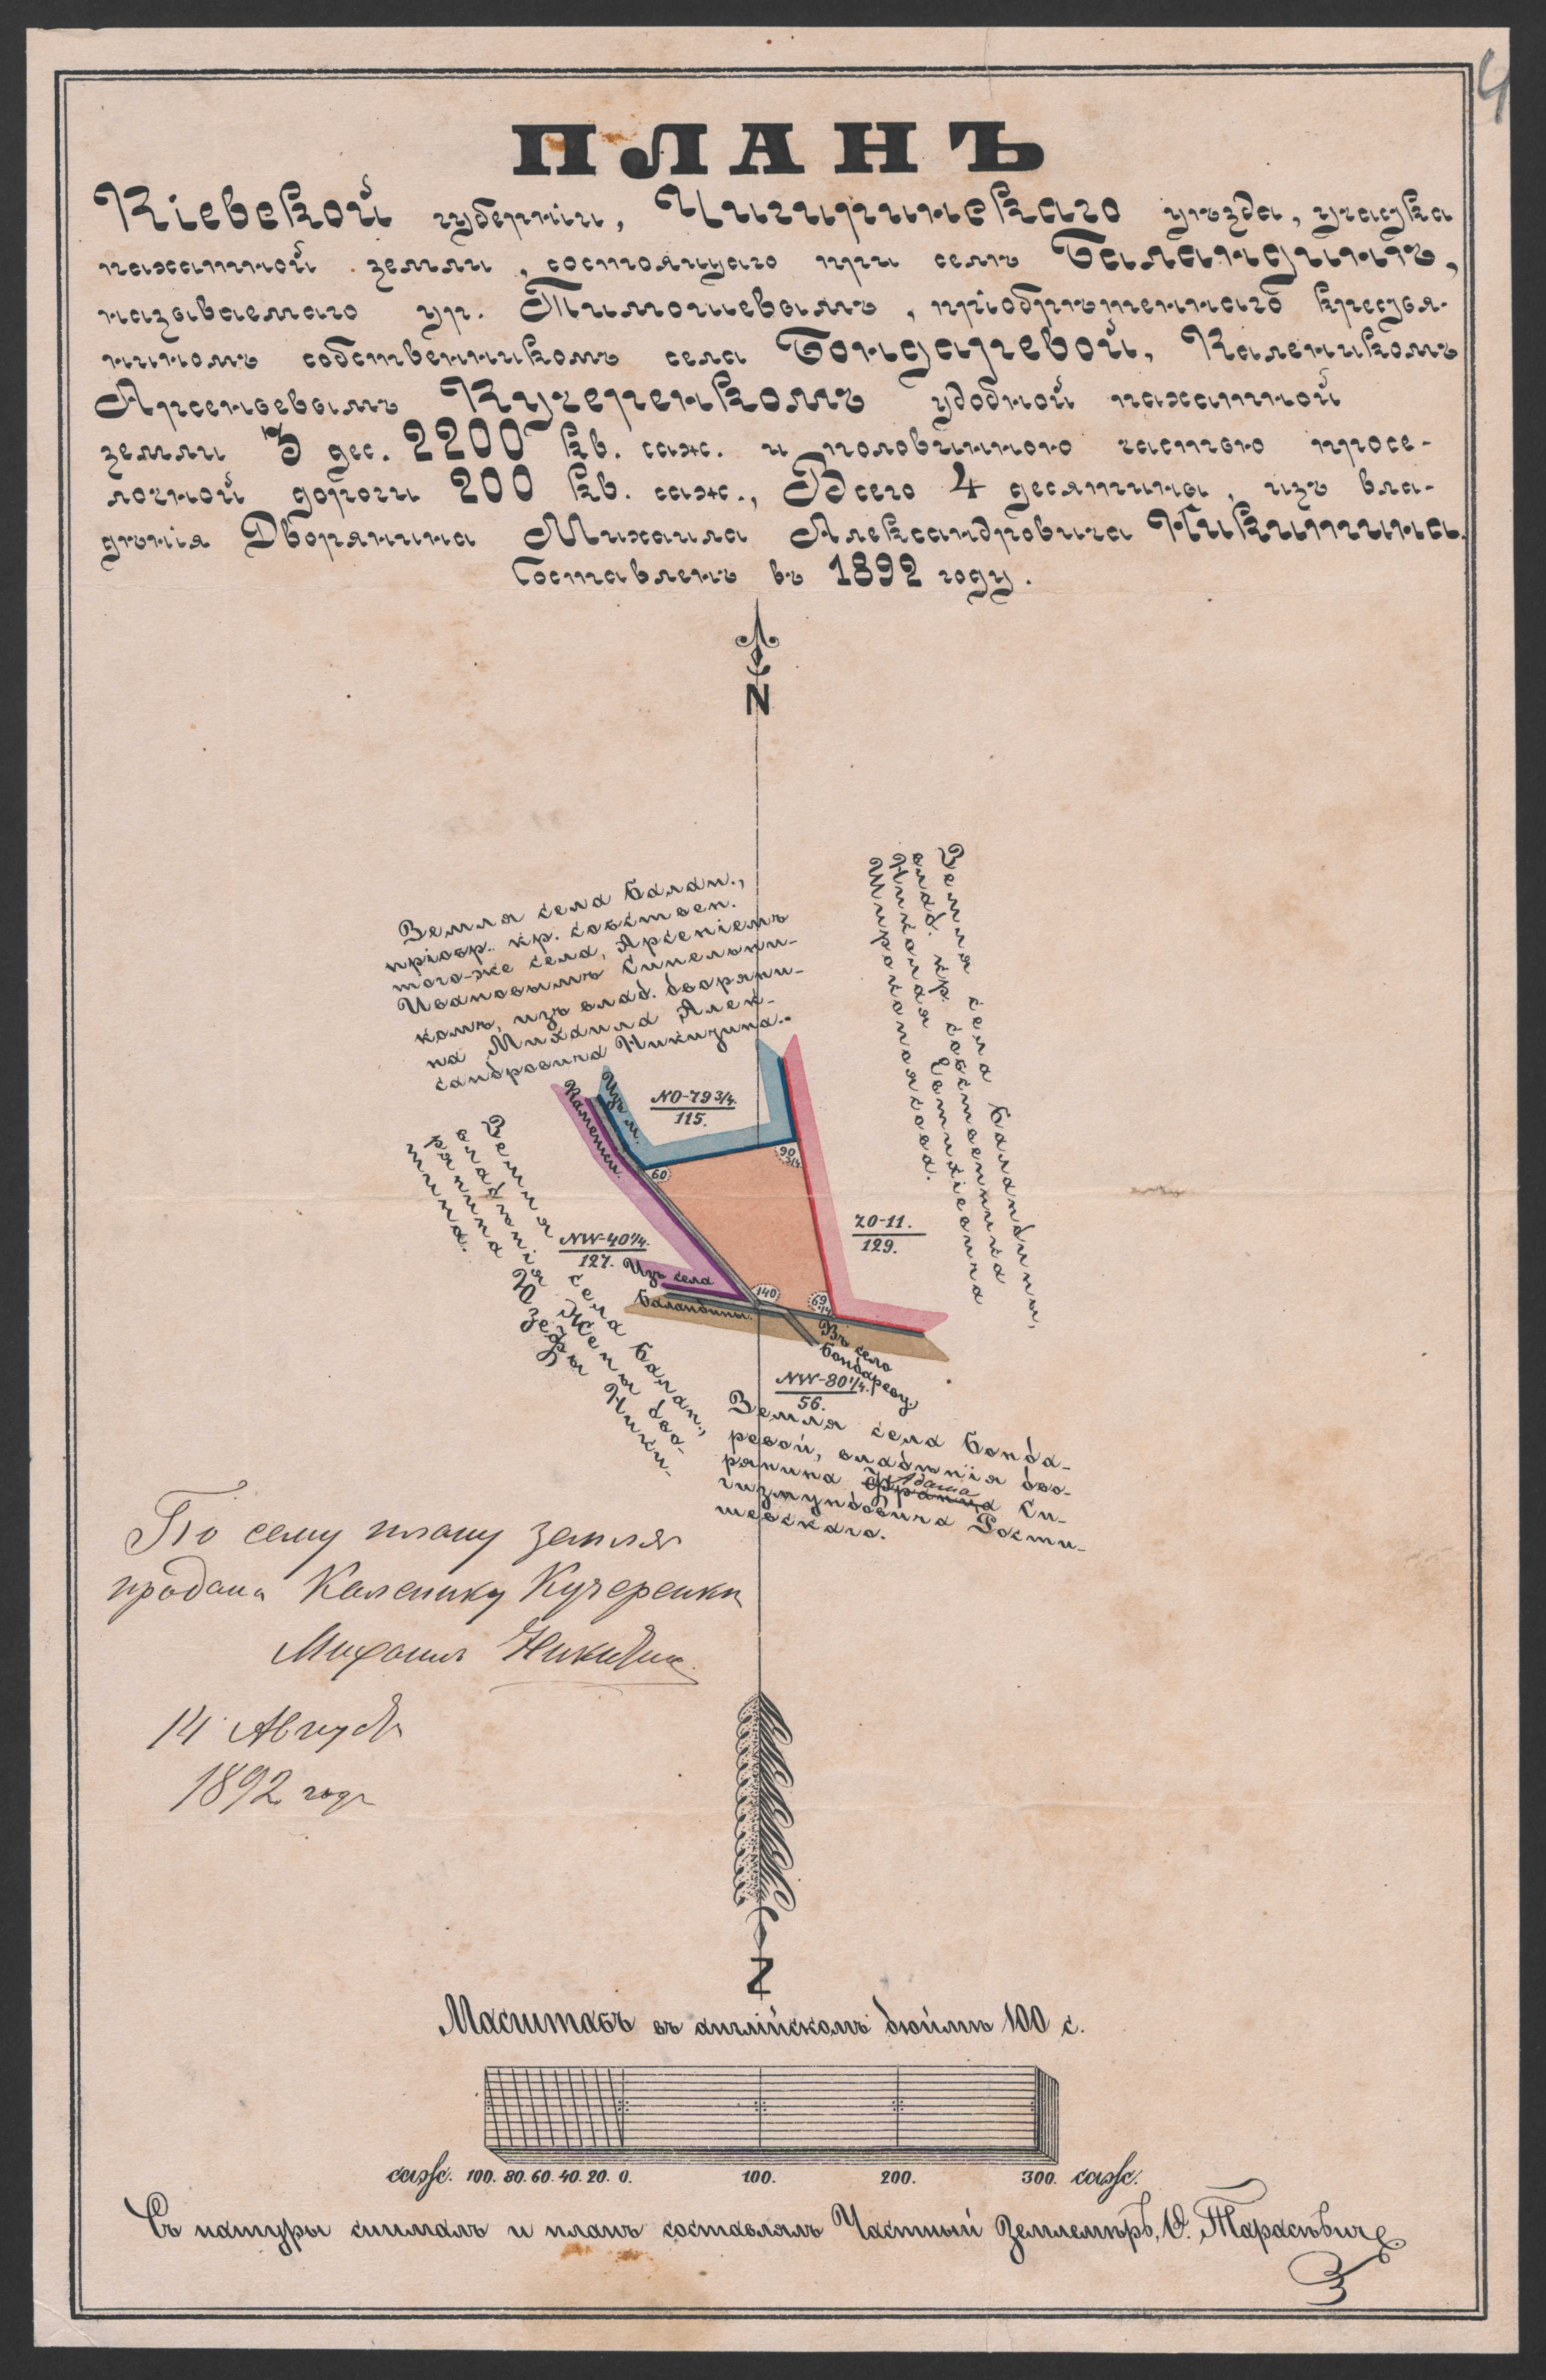 4
ПЛАНЪ
Кіевской губерніи, Чигиринскаго уѣзда, участка
пахатной земли, состоящаго при селѣ Баландинѣ,
называемаго ур. Тимошевымъ, пріобрѣтеннаго крестья-
ниномъ собственникомъ села Бондаревой, Каленикомъ
Арсеньевымъ Кучеренкомъ удобной пахатной
земли 3 дес. 2200 кв. саж. и половинною частью просе-
лочной дороги 200 кв. саж., Всего 4 десятины, изъ вла-
дѣнія Дворянина Михаила Александровича Никитина.
Составленъ въ 1892 году.
N
Земля села Балан.,
пріобр. кр. собствен.
того-же села, Арсеніемъ
Ивановымъ Синельни-
комъ, изъ влад. дворяни-
на Михаила Алек-
сандровича Никитина.
Земля села Баландины,
влад. кр. собственника
Николая Евтихіевича
Широкопоясова.
Изъ м.
Каменки.
NO-79 3/4.
115.
60
90 3/4
ZO-11.
129.
Земля села Балан.,
владѣнія Жены дво-
рянина Юзефы Ники-
тина.
NW-40 1/4.
127.
Изъ села
Баландины.
140
69 1/4
Въ село
Бондареву.
NW-80 1/4.
56.
Земля села Бонда-
ревой, владѣнія дво-
рянина Франца Адама Си-
гизмундовича Рости-
шевскаго.
По сему плану земля
продана Каленику Кучеренки
Михаилъ Никитин
14 Августа
1892 года
Z
Масштабъ въ англійскомъ дюймѣ 100 с.
саж. 100. 80. 60. 40. 20. 0. 100. 200. 300. саж.
Съ натуры снималъ и планъ составлялъ Частный Землемѣръ, Ѳ. Тарасѣвичъ